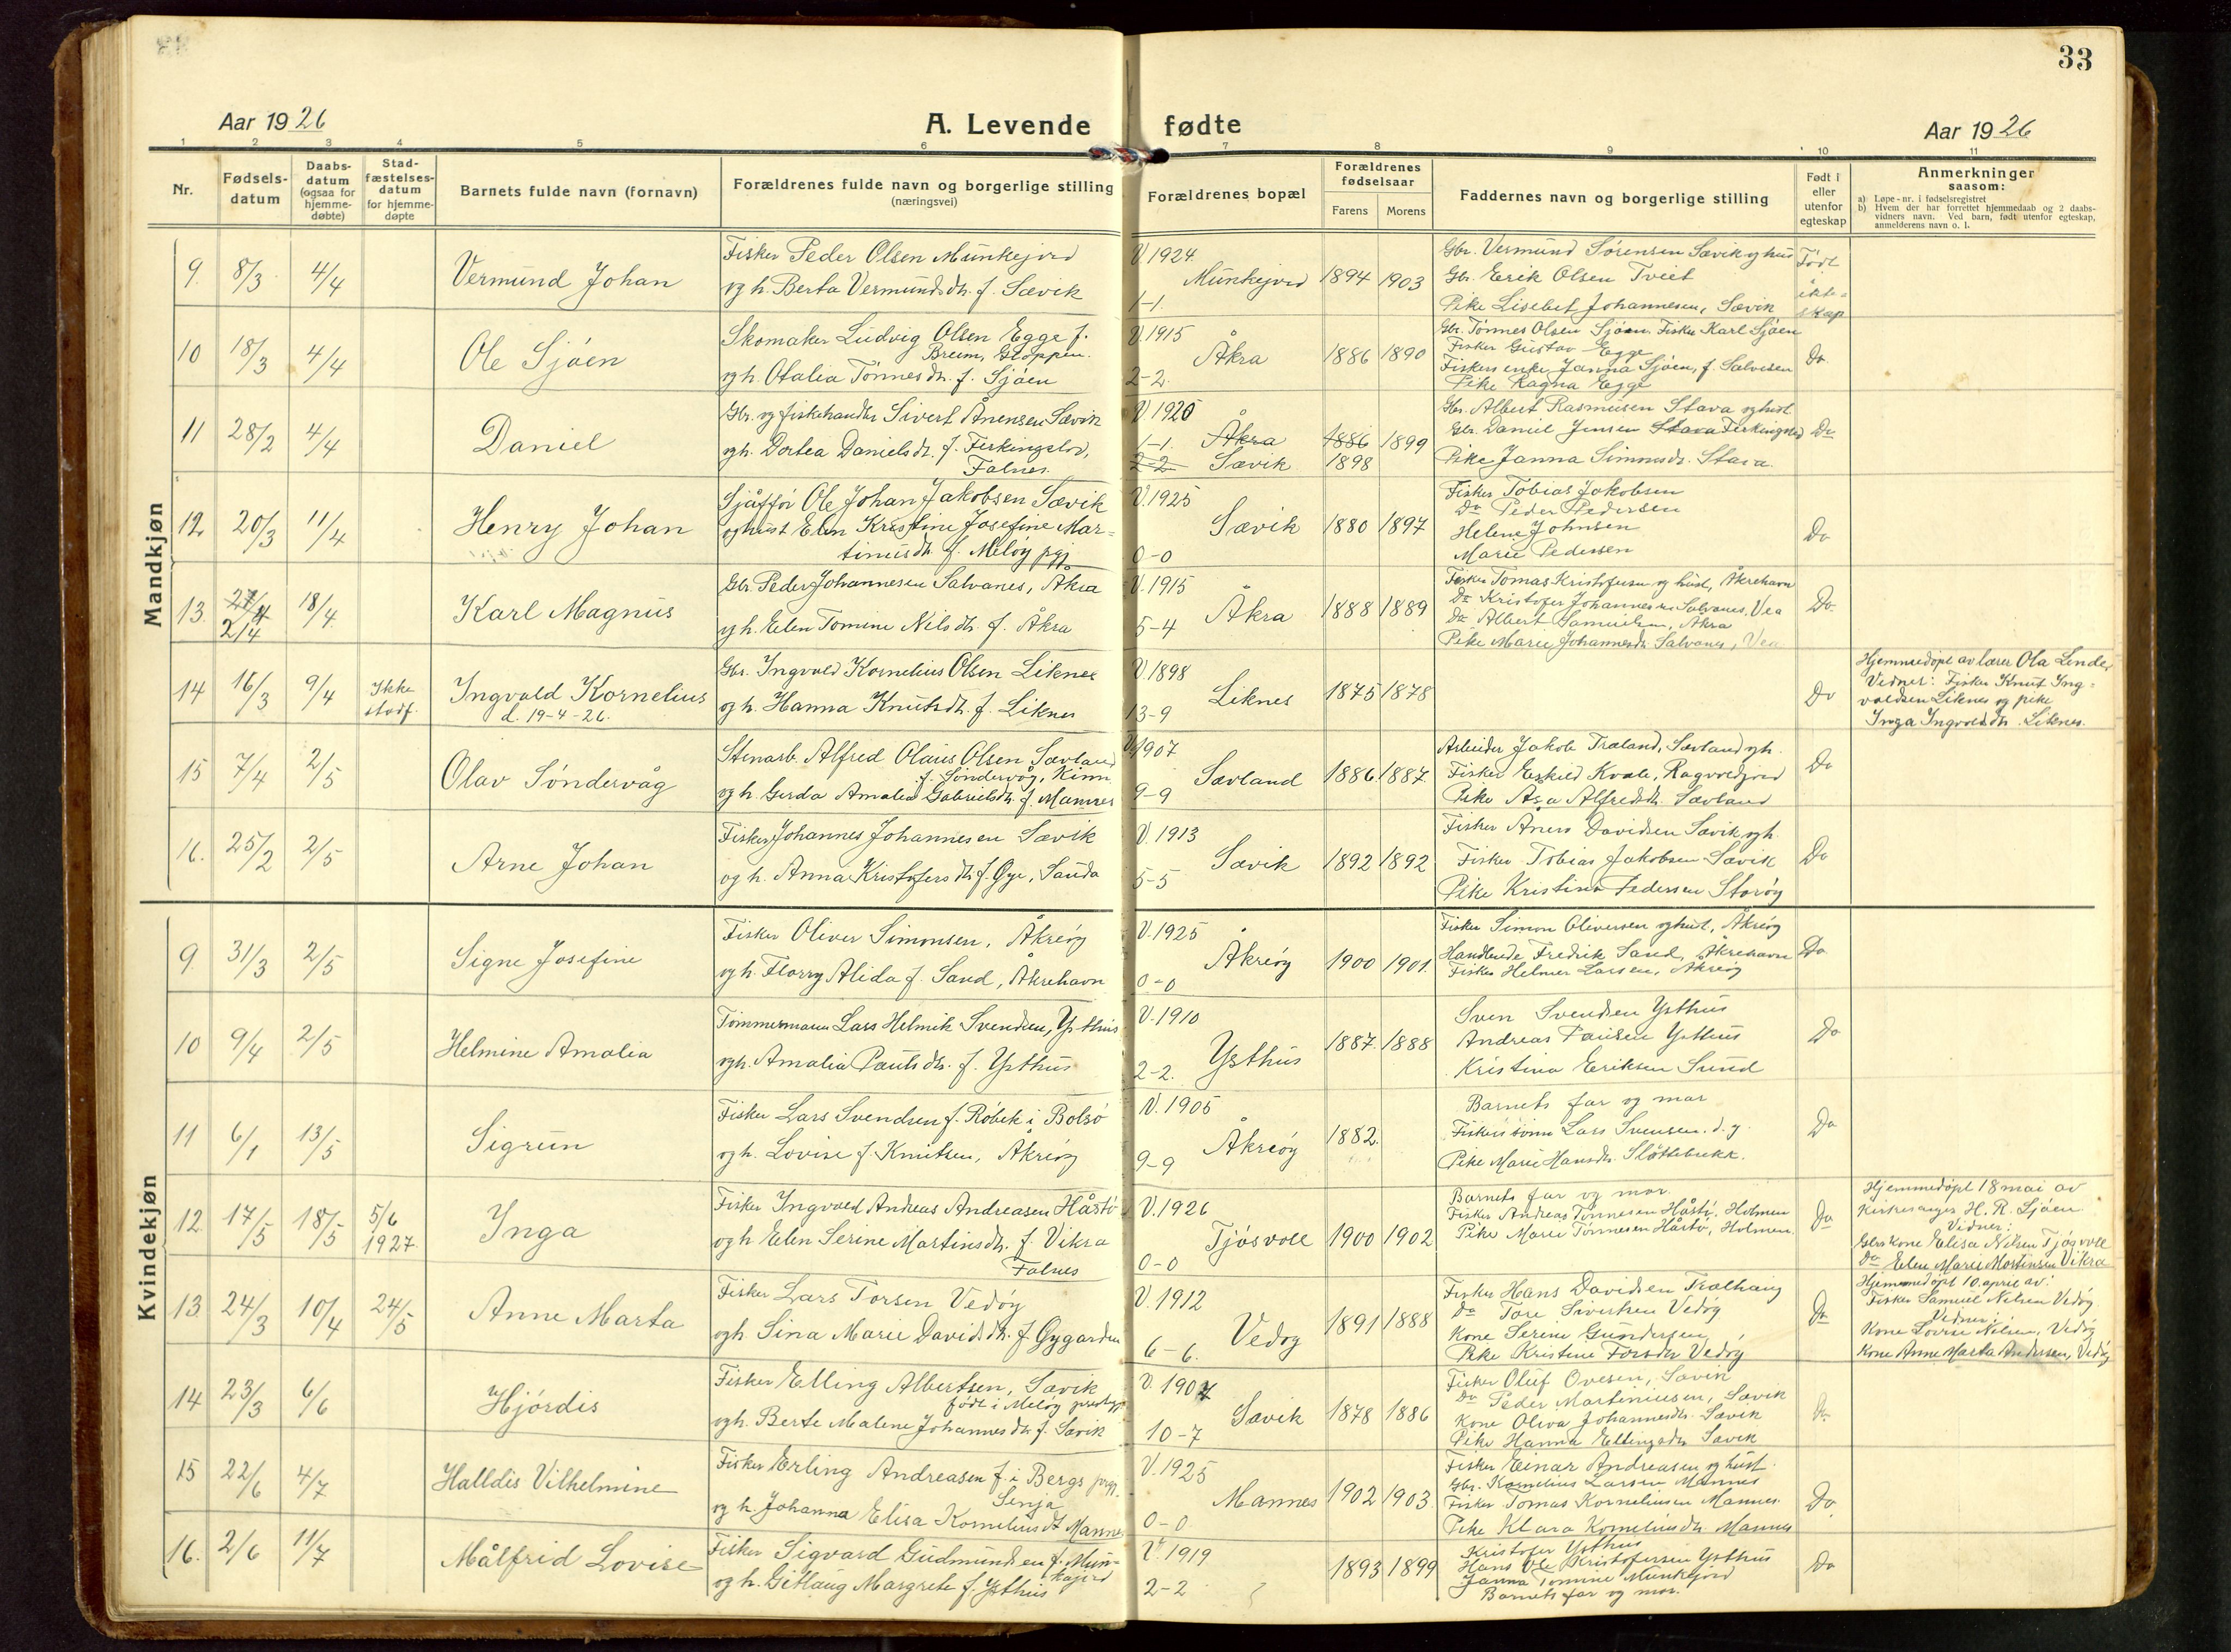 33
Aar 1926
A. Levende fødte
Aar 1926
1 2 3 4 5 6 7 8 9 10 11
Nr.
Fødsels-
datum
Daabs-
datum
(ogsaa for
hjemme-
døbte)
Stad-
fæstelses-
datum
for hjemme-
døpte
Barnets fulde navn (fornavn)
Forældrenes fulde navn og borgerlige stilling
(næringsvei)
Forældrenes bopæl
Forældrenes
fødselsaar
Farens
Morens
Faddernes navn og borgerlige stilling
Født i
eller
utenfor
egteskap
Anmerkninger
saasom:
a) Løpe-nr. i fødselsregistret
b) Hvem der har forrettet hjemmedaab og 2 daabs-
vidners navn. Ved barn, født utenfor egteskap,
anmelderens navn o. l.
Mandkjøn
9. 8/3 4/4
Vermund Johan
Fisker Peder Olsen Munkejord
og h. Berta Vermundsdtr. f. Sævik
V 1924
Munkejord
1-1.
1894 1903
Gbr. Vermund Sørensen Sævik og hust
Gbr. Eerik Olsen Tveit
Pike Lisebet Johannesen, Sævik
Født
i
ekte-
skap
10 18/3 4/4
Ole Sjöen
Skomaker Ludvig Olsen Egge f.
Breim, Gloppen.
og h. Otalia Tönnesdtr. f. Sjöen
V. 1915
Åkra
2-2.
1886 1890
Gbr. Tönnes Olsen Sjöen. Fisker Karl Sjöen
Fisker Gustav Egge
Fiskers enke Janna Sjöen, f. Salvesen
Pike Ragna Egge
Do.
11 28/2 4/4
Daniel
Gbr. og fiskehandler Sivert Ånensen Sævik
og h. Dortea Danielsdtr. f. Ferkingstad,
Falnes.
V 1920
1-1. Åkra
2-2 Sævik
1886 1899
1898
Gbr. Albert Rasmusen Stava og hust.
Gbr. Daniel Jensen Stava Ferkingstad
Pike Janna Simonsdtr. Stava.
Do
12 20/3 11/4
Henry Johan
Sjåffør Ole Johan Jakobsen Sævik
og hust Elen Kristine Josefine Mar-
tinusdtr. f. Melöy pgj
V. 1925
Sævik
0-0
1880 1897
Fisker Tobias Jakobsen
Do Peder Pedersen
Helene Johnsen
Marie Pedersen
Do
13. 27/4 18/4
2/4
Karl Magnus
Gbr. Peder Johannesen Salvanes, Åkra
og h. Eelen Tomine Nilsdtr. f. Åkra
V. 1915
Åkra
5-4
1888 1889
Fisker Tomas Kristofersen og hust, Åkrehavn
Do Kristofer Johannesen Salvanes, Vea
Do Albert Samuelsen, Åkra
Pike Marie Johannesdtr. Salvanes, Vea
Do.
14 16/3 9/4
Ikke
stadf.
Ingvald Kornelius
d. 19-4-26.
Gbr. Ingvald Kornelius Olsen Liknes
og h. Hanna Knutsdtr. f. Liknes
V 1898
Liknes
13-9
1875 1878
Do
Hjemmedöpt av lærer Ola Lende,
Vidner: Fisker Knut Ing-
valdsen Liknes og pike
Inga Ingvaldsdtr. Liknes.
15 7/4 2/5
Olav Söndervåg
Stenarb. Alfred Olaus Olsen Sævland
f. Söndervåg, Kinn
og h. Gerda Amalia Gabrielsdtr. f. Mannes
V 1907
Sævland
9-9
1886 1887
Arbeider Jakob Træland, Sævland og h.
Fisker Eskild Kvale, Ragvoldjord
Pike Asa Alfredsdtr. Sævland
Do
16. 25/2 2/5
Arne Johan
Fisker Johannes Johannesen Sævik
og h. Anna Kristofersdtr. f. Øye, Sauda
V. 1913
Sævik
5-5
1892 1892
Fisker Aners Davidsen Sævik og h.
Fisker Tobias Jakobsen Sævik
Pike Kristine Pedersen Storöy
Do
Kvindekjøn
9. 31/3 2/5
Signe Josefine
Fisker Oliver Simonsen, Åkreöy
og h. Florry Alida f. Sand, Åkrehavn
V. 1925
Åkreöy
0-0
1900 1901.
Fisker Simon Oliversen og hust, Åkreöy
Handlende Fredrik Sand, Åkrehavn
Fisker Helmer Larsen, Åkreöy
Do
10 9/4 2/5
Helmine Amalia
Tömmermann Lars Helmik Svendsen, Ysthus
og h. Amalia Paulsdtr. f. Ysthus
V. 1910
Ysthus
2-2.
1887. 1888
Sven Svendsen Ysthus
Andreas Paulsen Ysthus
Kristina Eriksen Sund
Do
11 6/1 13/5
Sigrun
Fisker Lars Svendsen f. Röbek i Bolsö
og h. Lovise f. Knutsen, Åkreöy
V. 1905
Åkreöy
9-9
1882.
Barnets far og mor
Fiskersönn Lars Svensen. d. y.
Pike Marie Hansdtr. Slöttebrekk.
Do
12. 17/5 18/5 5/6
1927.
Inga
Fisker Ingvald Andreas Andreasen Håstö
og h Elen Serine Martinsdtr. f. Vikra
Falnes
V. 1926
Tjösvoll
0-0
1900 1902
Barnets far og mor.
Fisker Andreas Tönnesen Håstö, Holmen
Pike Marie Tönnesen Håstö, Holmen.
Do
Hjemmedöpt 18 mai av
Kirkesanger H. R. Sjöen
Vidner:
Gbrs kone Elisa Nilsen Tjösvoll
Do Elen Marie Mortensen Vikra
13. 24/3 10/4 24/5
Anne Marta
Fisker Lars Torsen Vedöy
og h. Sina Marie Davidsdtr. f. Gygarden
V. 1912
Vedöy
6-6.
1891 1888
Fisker Hans Davidsen Trælhaug
Do Tore Sivertsen Vedöy
Kone Serine Gundersen
Pike Kristine Torsdtr Vedöy
Do
Hjemmedöpt 10. april av:
Fisker Samuel Nilsen Vedöy
Vidner:
Kone Lovise Nilsen, Vedöy
Kone Anne Marta Andersen, Vedöy
14 23/3 6/6
Hjördis
Fisker Elling Albertsen, Sævik
född i Melöy prestegj.
og h. Berte Malene Johannesdtr f. Sævik
V. 1907
Sævik
10-7
1878 1886
Fisker Oluf Ovesen, Sævik
Do Peder Martiniusen, Sævik
Kone Oliva Johannesdtr. Sævik
Pike Hanna Ellingsdtr Sævik
Do
15 22/6 4/7
Halldis Vilhelmine
Fisker Erling Andreasen f. i Bergs prgj.
Senja
og h. Johanna Elisa Korneliusdt Mannes
V. 1925
Mannes
0-0
1902 1903.
Fisker Einar Andreasen og hust.
Gbr. Kornelius Larsen Mannes
Fisker Tomas Korneliusen Mannes.
Pike Klara Korneliusdtr Mannes
Do
16. 2/6 11/7
Målfrid Lovise
Fisker Sigvard Gudmundsen f. Mun-
kejord
og h. Gitlaug Margrete f. Ysthus
V. 1919
2-2
1893 1899
Kristofer Ysthus
Hans Ole Kristofersen Ysthus
Janna Tomine Munkejord
Barnets far og mor.
Do